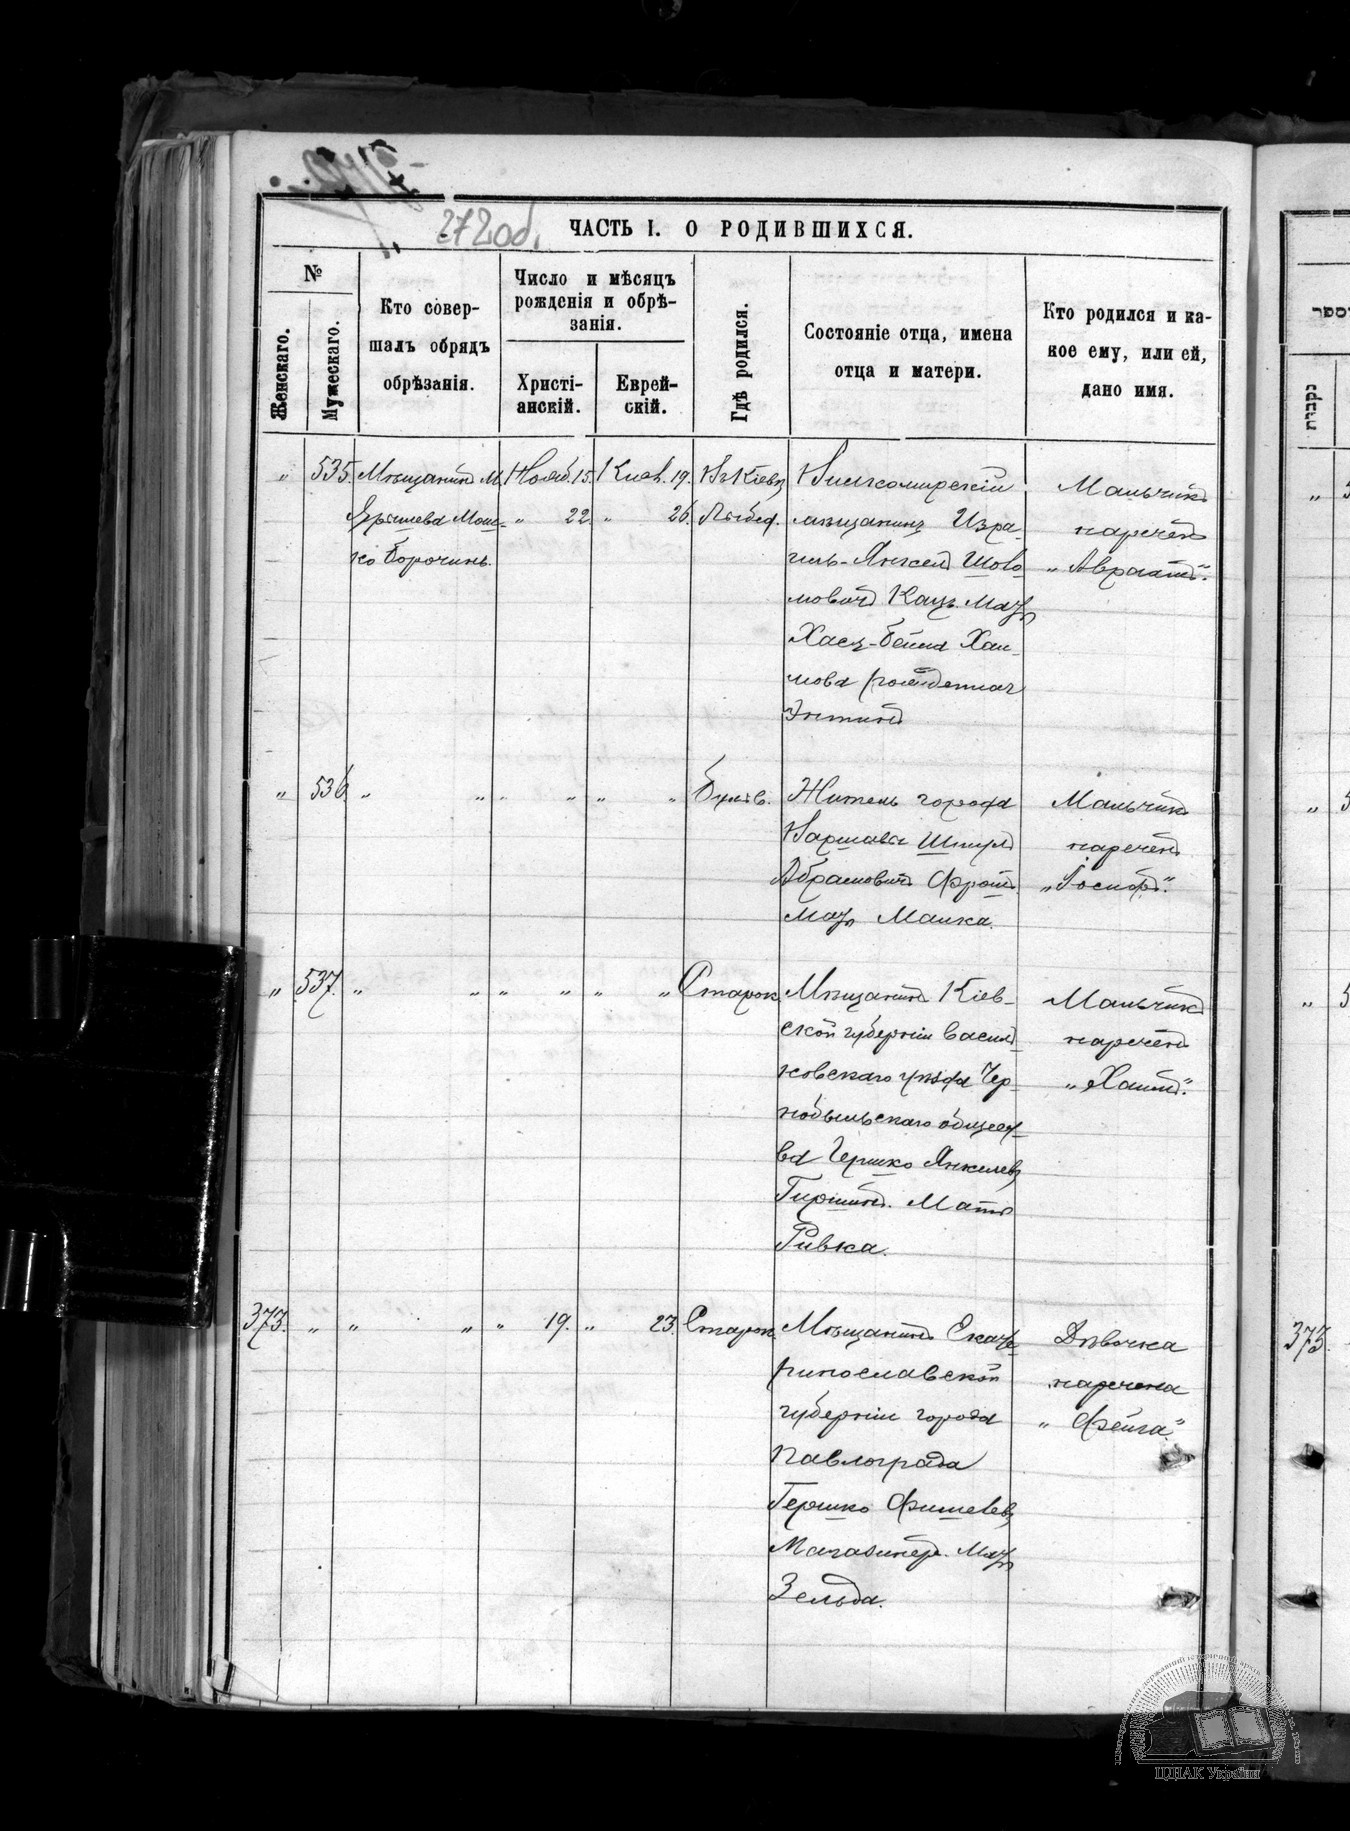 272об.
ЧАСТЬ I. О РОДИВШИХСЯ.
№
Женскаго.
Мужескаго.
Кто совер-
шалъ обрядъ
обрѣзанія.
Число и мѣсяцъ
рожденія и обрѣ-
занія.
Христі-
анскій.
Еврей-
скій.
Гдѣ родился.
Состояніе отца, имена
отца и матери.
Кто родился и ка-
кое ему, или ей,
дано имя.
„ 535. Мѣщанинъ М. Нояб. 15. Кисл. 19. Въ Кіевѣ
Ярышева Мош- „ 22. „ 26. Лыбед.
ко Борочинъ.
Вилкомирскій
мѣщанинъ Изра-
иль-Янкель Шоло-
мовичъ Кацъ. Мать
Хася-Бейла Хаи-
мова рожденная
Энтинъ
Мальчикъ
нареченъ
„Авраамъ".
„ 536. „ „ „ „ „ „ Бульв.
Житель города
Варшавы Шмулъ
Абрамовичъ Фроим.
Мать Малка.
Мальчикъ
нареченъ
„Іосифъ".
„ 537. „ „ „ „ „ „ Старок.
Мѣщанинъ Кіев-
ской губерніи Василь-
ковскаго уѣзда Чер-
нобыльскаго общест-
ва Гершко Янкелевъ
Гиршинъ. Мать
Ривка.
Мальчикъ
нареченъ
„Хаимъ".
373. „ „ „ „ 19. „ 23. Старок.
Мѣщанинъ Екате-
ринославской
губерніи города
Павлограда
Гершко Фишелевъ
Магазинеръ. Мать
Зельда.
Дѣвочка
наречена
„Фейга".
נקבות
„ 5
„ 5
„ 5
373.
ЦДІАК України